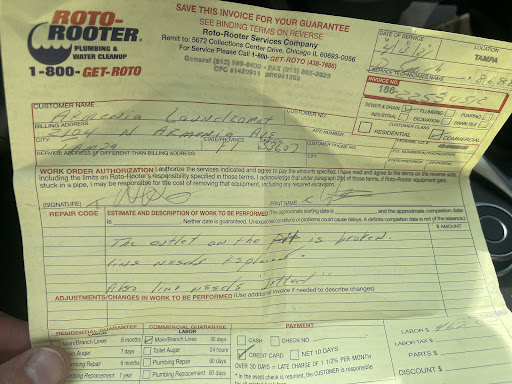 SAVE THIS INVOICE FOR YOUR GUARANTEE
SEE BINDING TERMS ON REVERSE
ROTO-
ROOTER
PLUMBING &
WATER CLEANUP
1-800-GET-ROTO
Roto-Rooter Services Company
Remit to: 5672 Collections Center Drive, Chicago IL 60693-0056
For Service Please Call 1-800-GET-ROTO (438-7686)
DATE OF SERVICE
LOCATION
TAMPA
SERVICE TECHNICIAN'S NAME
INVOICE NO.
SEWER & DRAIN PLUMBING PUMPING
INDUSTRIAL EXCAVATION
CUSTOMER CLASS
RESIDENTIAL COMMERCIAL
CUSTOMER NAME
Armenia Laundromat
BILLING ADDRESS
2104 N Armenia Ave
APT. NUMBER
CITY STATE/PROVINCE
Tampa 33607
CUSTOMER PHONE NO.
SERVICE ADDRESS (IF DIFFERENT THAN BILLING ADDRESS)
WORK ORDER AUTHORIZATION I authorize the services indicated and agree to pay the amounts specified. I have read and agree to the terms on the reverse side,
including the limits on Roto-Rooter's responsibility specified in those terms. I acknowledge that under paragraph of those terms, if Roto-Rooter equipment gets
stuck in a pipe, I may be responsible for the cost of removing that equipment, including any required excavation.
(SIGNATURE) X PRINT NAME X
REPAIR CODE ESTIMATE AND DESCRIPTION OF WORK TO BE PERFORMED (The approximate starting date is , and the approximate completion date
is . Neither date is guaranteed. Unexpected conditions or problems could cause delays. A definite completion date is not of the essence.)
$ AMOUNT
The outlet on the is broken.
line needs replaced.
Also line needs "Jetted"
ADJUSTMENTS/CHANGES IN WORK TO BE PERFORMED (Use additional invoice if needed to describe changes)
RESIDENTIAL GUARANTEE
Main/Branch Lines 6 months
Toilet Auger 7 days
Plumbing Repair 6 months
Plumbing Replacement 1 year
COMMERCIAL GUARANTEE
LABOR
Main/Branch Lines 30 days
Toilet Auger 24 hours
Plumbing Repair 90 days
Plumbing Replacement 90 days
PAYMENT
CASH CHECK NO.
CREDIT CARD NET 10 DAYS
OVER 30 DAYS = LATE CHARGE OF 1 1/2% PER MONTH
LABOR $
LABOR TAX $
PARTS $
DISCOUNT $